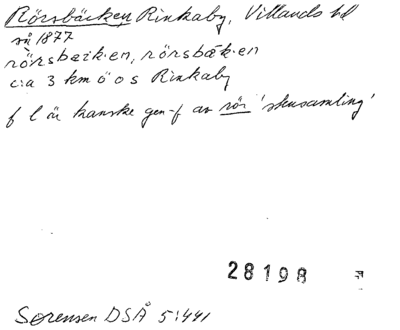 Rörsbäcken Rinkaby, Villands hd
så 1877
rörsbæk·en, rörsbǣk·en
c:a 3 km ö o s Rinkaby
f l är kanske gen-f av rör 'stensamling'
28198
Sørensen DSÅ 5:441